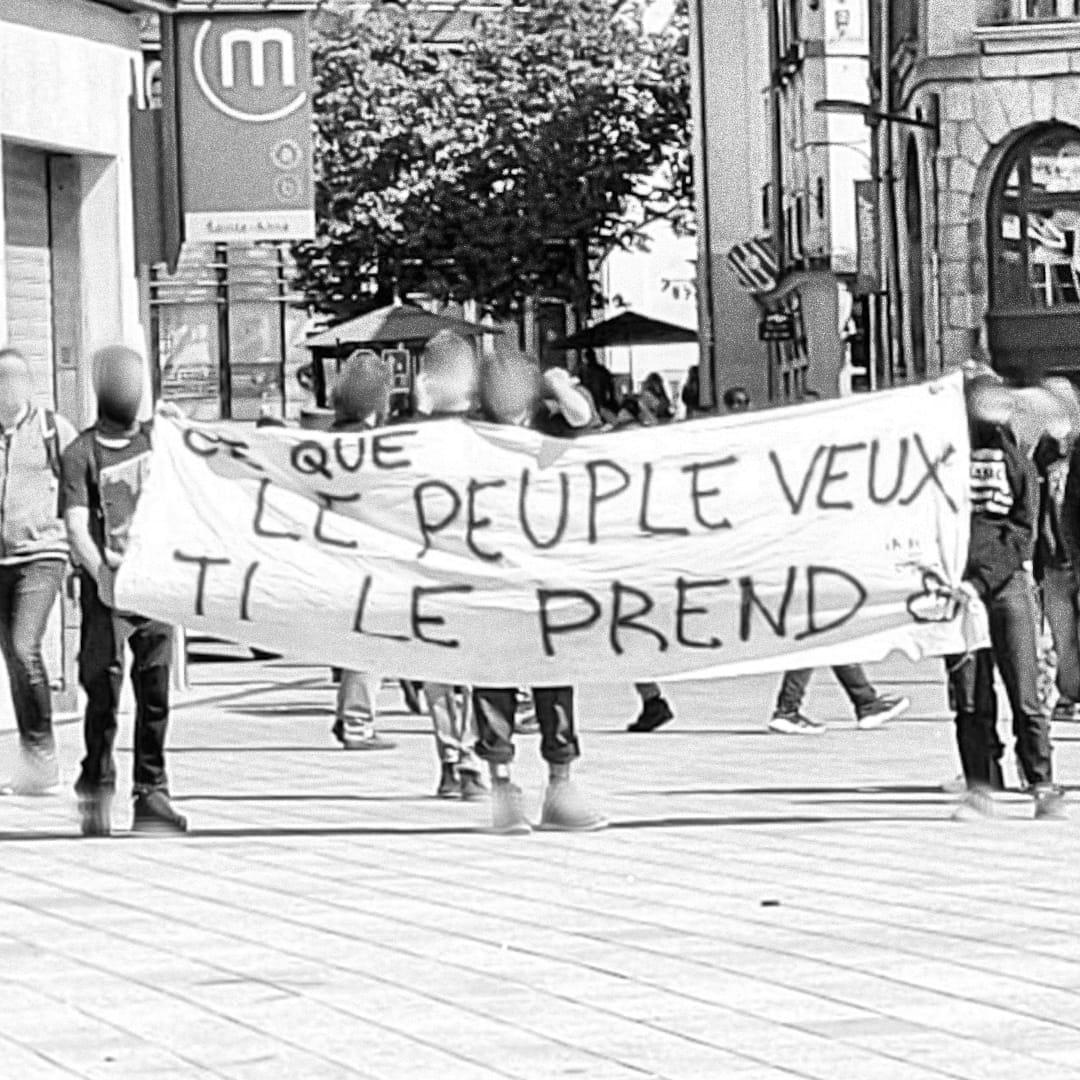 m
Sainte-Anne
CE QUE
LE PEUPLE VEUX
TI LE PREND